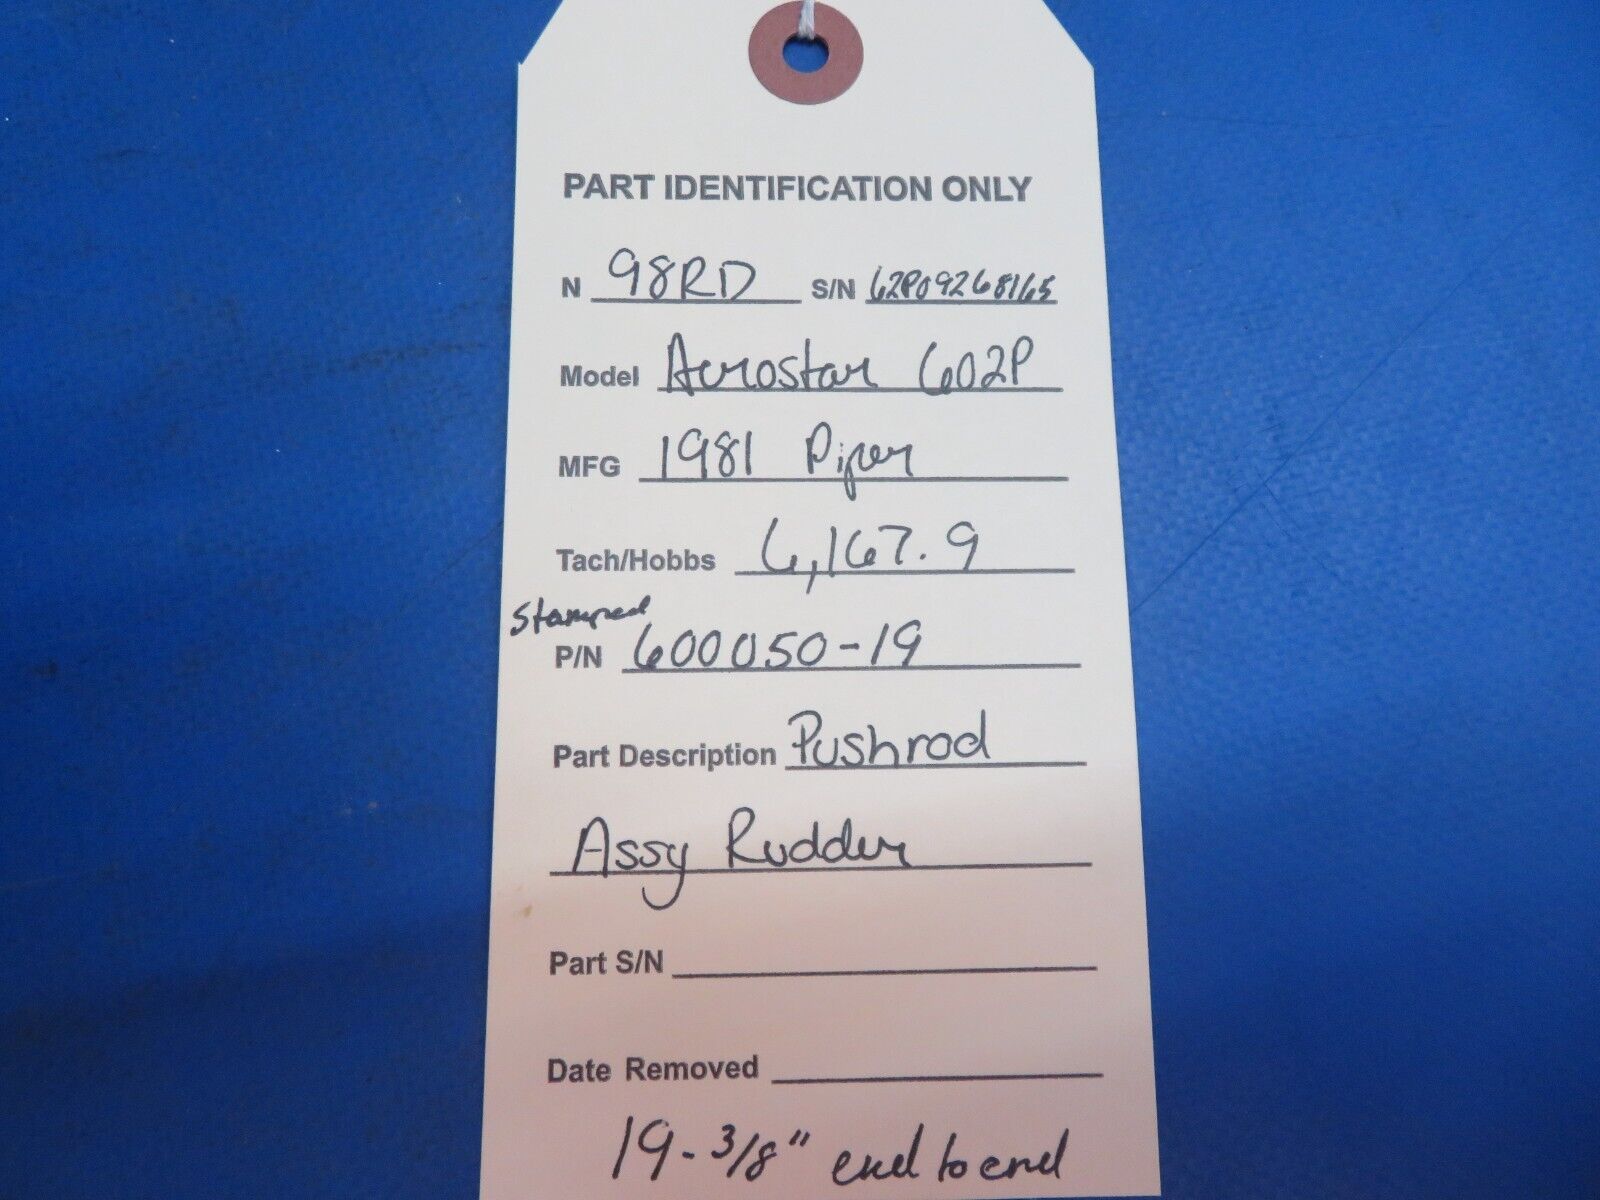 PART IDENTIFICATION ONLY
N 98RD S/N 62P09268165
Model Aerostar 602P
MFG 1981 Piper
Tach/Hobbs 6,167.9
Stamped
P/N 600050-19
Part Description Pushrod
Assy Rudder
Part S/N
Date Removed
19-3/8" end to end